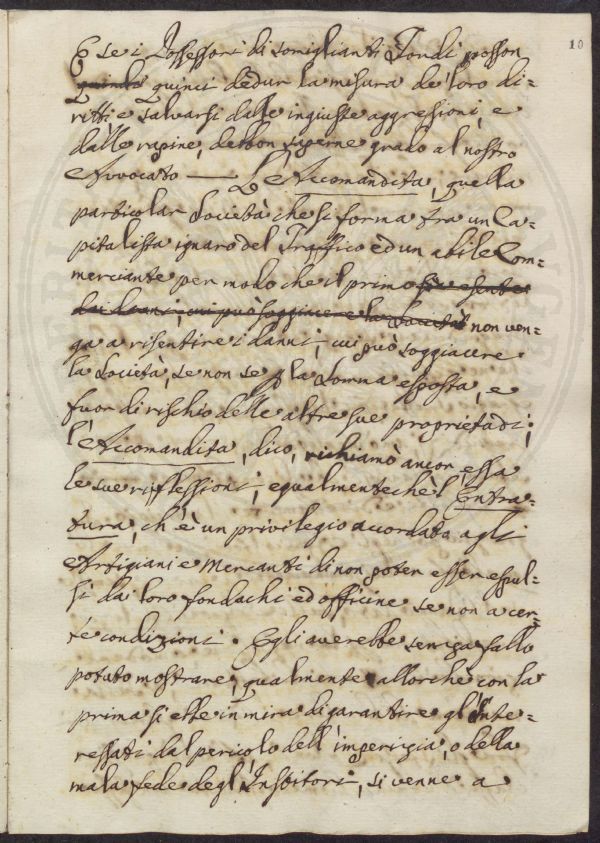 10
E se i Possessori di somiglianti Fondi posson
quindi quinci dedur la misura de' loro di=
ritti e salvarsi dalle ingiuste aggressioni, e
dalle rapine, debbon saperne grado al nostro
Avvocato — L'Accomandita, quella
particolar Società che si forma tra un Ca=
pitalista ignaro del Traffico ed un abile Com=
merciante per modo che il primo sia esente
dai danni, cui può soggiacere la Società non ven=
ga a risentire i danni, cui può soggiacere
la Società, se non se p la somma esposta, e
fuor di rischio delle altre sue proprietadi;
l'Accomandita, dico, richiamò ancor essa
le sue riflessioni, egualmenteche l'Entra=
tura, ch'è un privilegio accordato agli
Artigiani e Mercanti di non poter esser espul=
si dai loro fondachi ed officine se non a cer=
te condizioni. Egli averebbe senza fallo
potuto mostrare, qualmente allorchè con la
prima si ebbe in mira di garantire gl'Inte=
ressati dal pericolo dell'imperizia, o della
mala fede degl'Institori, si venne a